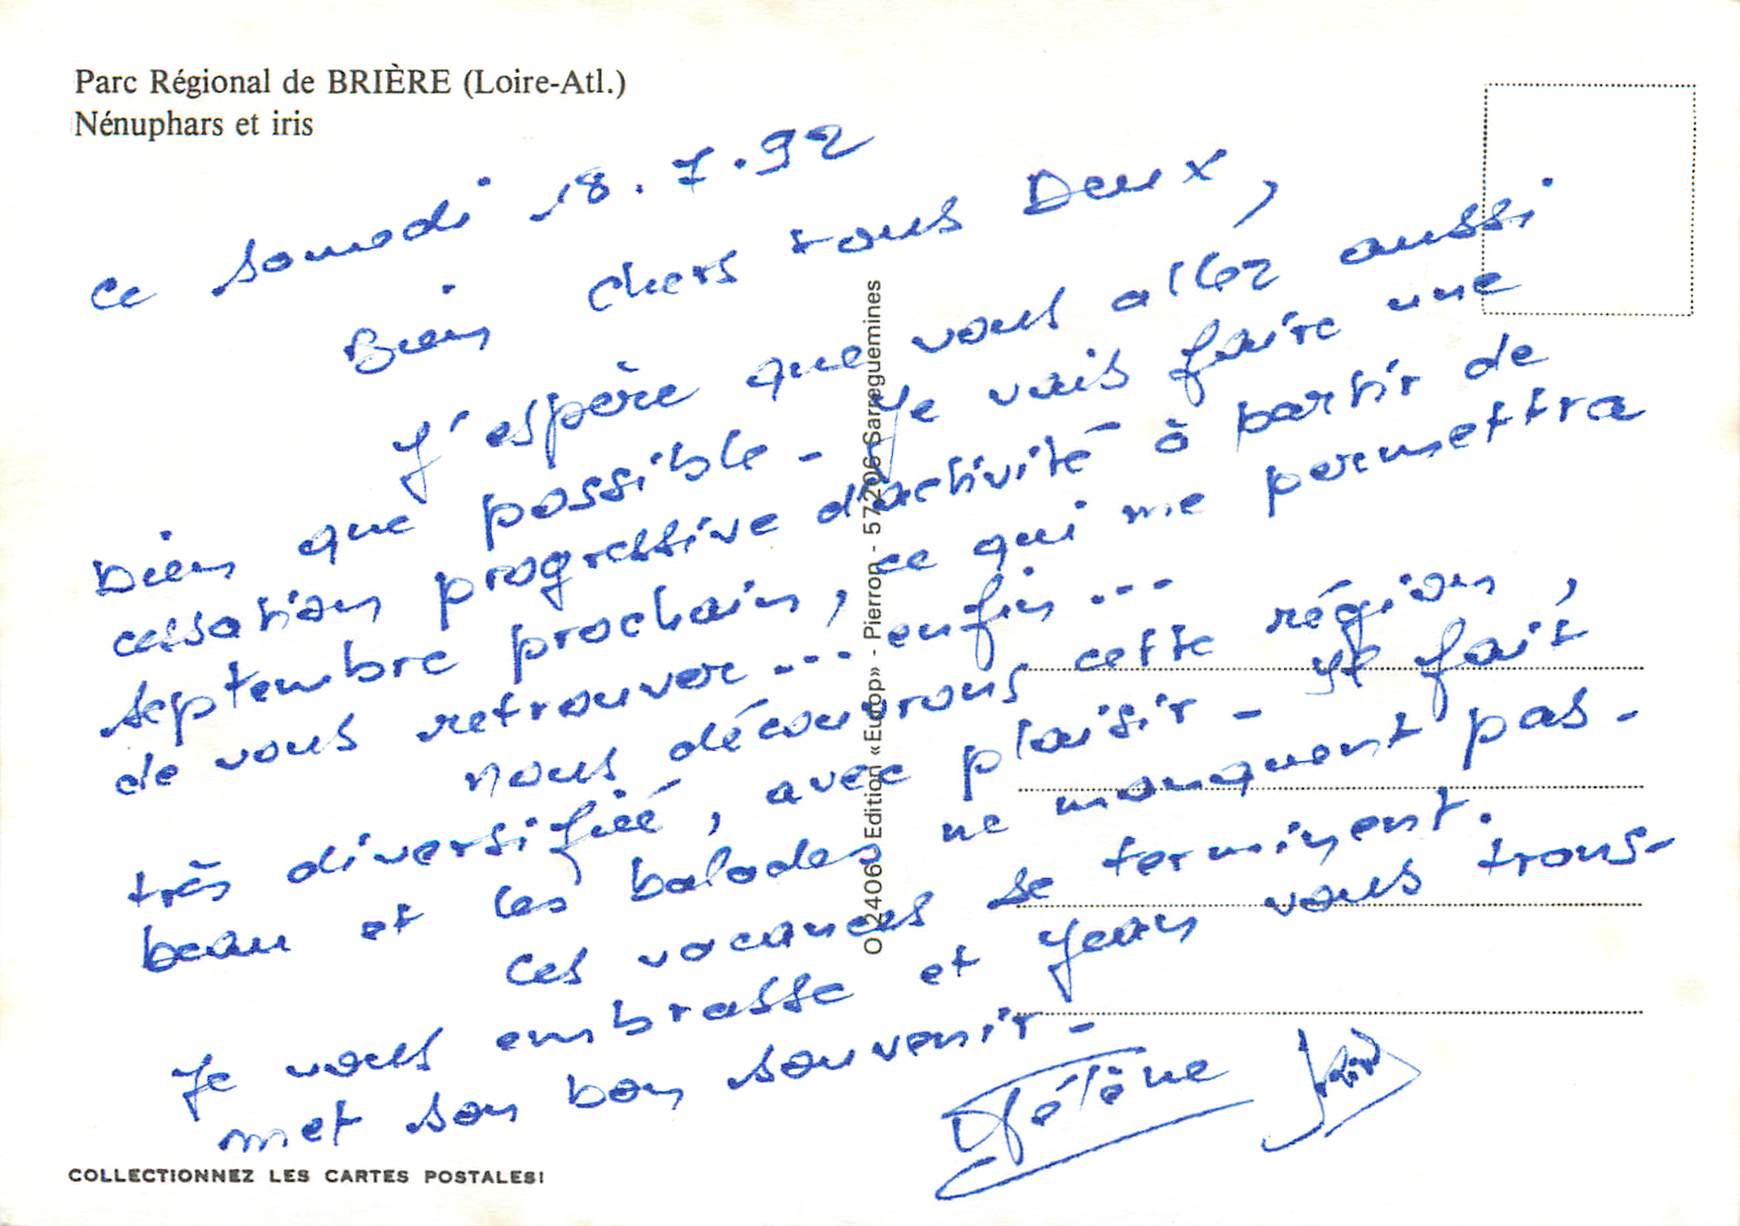 Parc Régional de BRIÈRE (Loire-Atl.)
Nénuphars et iris
ce samedi 18.7.92
Bien chers tous Deux,
J'espère que vous allez aussi
bien que possible - Je vais faire une
cessation progressive d'activité à partir de
septembre prochain, ce qui me permettra
de vous retrouver... enfin...
nous découvrons cette région,
très diversifiée, avec plaisir - Il fait
beau et les balades ne manquent pas -
Ces vacances se terminent.
Je vous embrasse et Jean vous trans-
met son bon souvenir -
Hélène Jean
O 24066 Edition «Europ» - Pierron - 57206 Sarreguemines
COLLECTIONNEZ LES CARTES POSTALES!